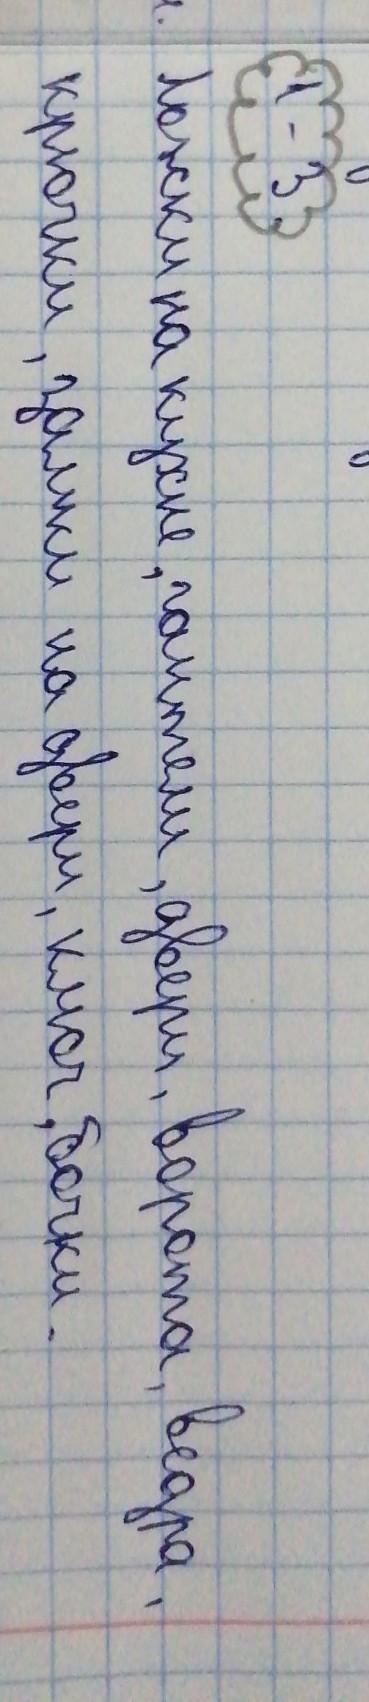 1-3
Ложки на кухне, гантели, двери, ворота, ведра,
крючки, замки на двери, ключ, бочки.